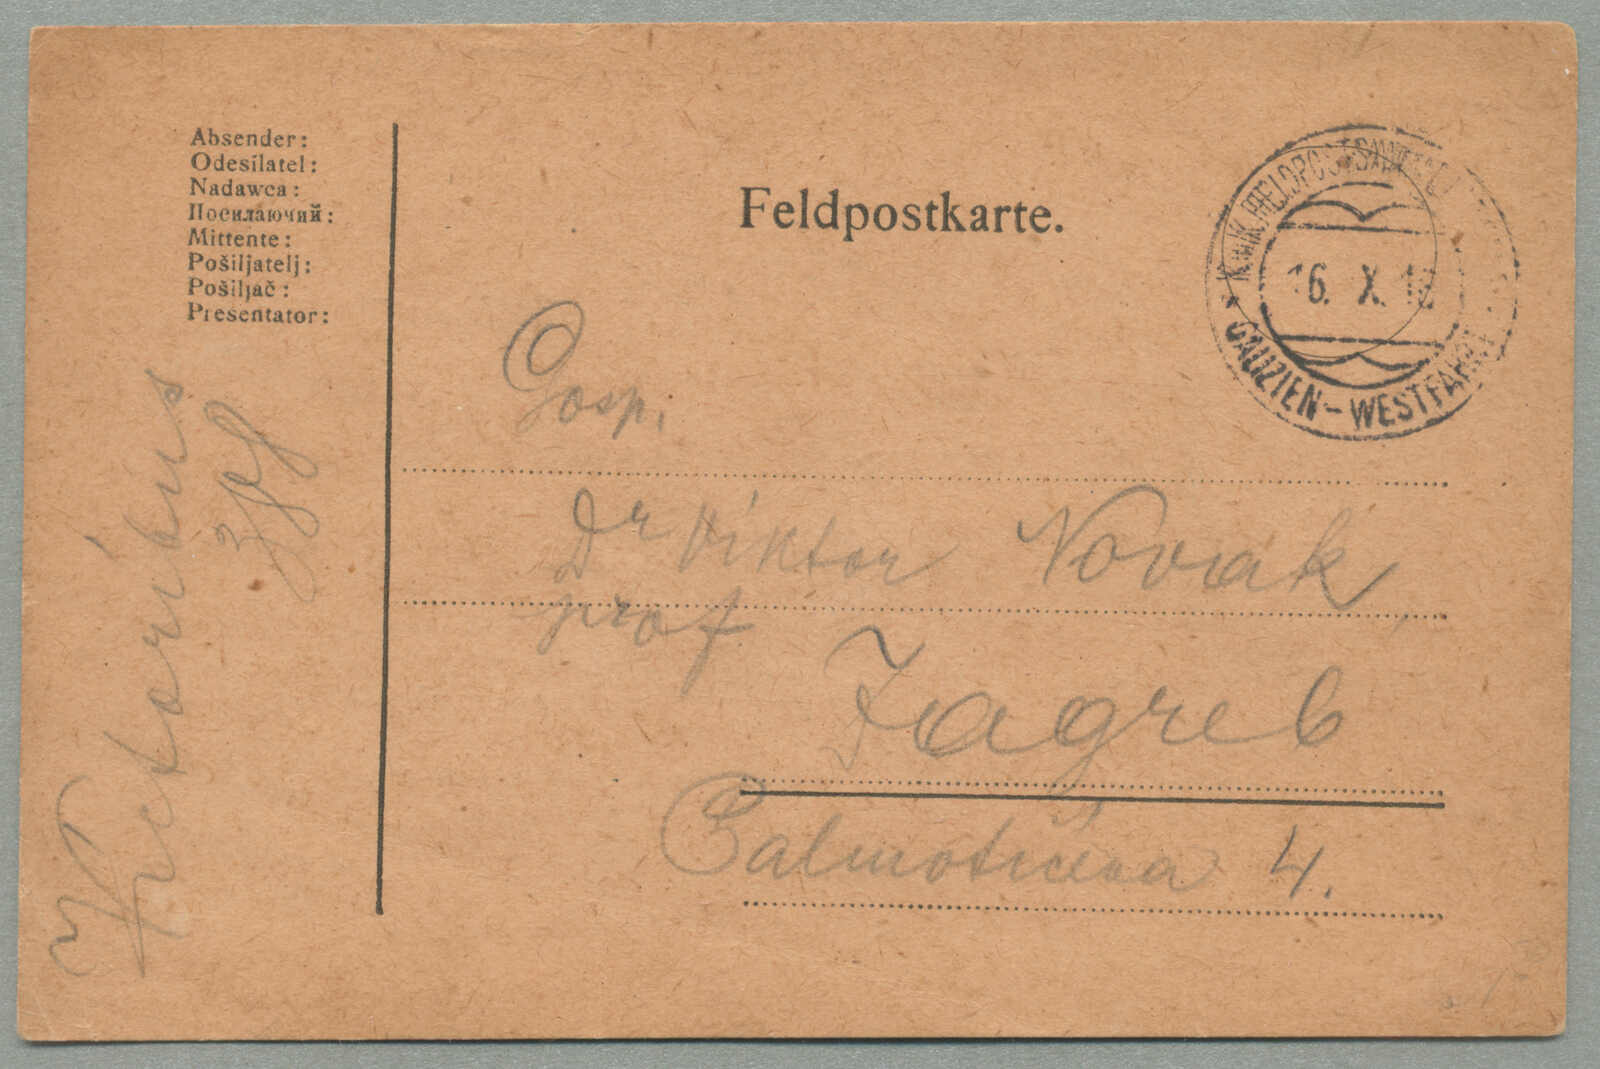 Absender:
Odesílatel:
Nadawca:
Посилаючий:
Mittente:
Pošiljatelj:
Pošiljač:
Presentator:
Feldpostkarte.
GALIZIEN – WESTFAHRT
16. X.
Gosp.
Dr Viktor Novak
prof
Zagreb
Palmotićeva 4.